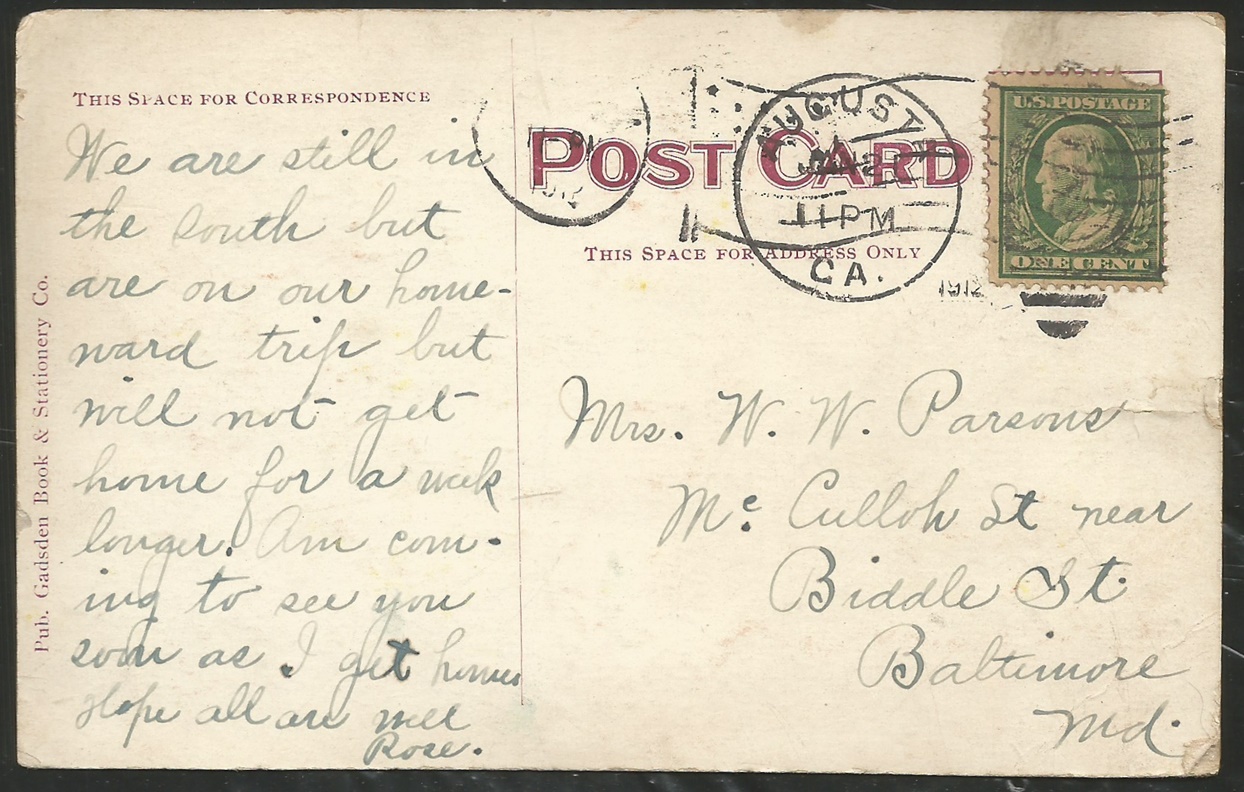 THIS SPACE FOR CORRESPONDENCE
We are still in
the south but
are on our home-
ward trip but
will not get
home for a week
longer. Am com-
ing to see you
soon as I get home.
Hope all are well
Rose.
Pub. Gadsden Book & Stationery Co.
POST CARD
THIS SPACE FOR ADDRESS ONLY
AUGUSTA
12
11 PM
GA.
1912
U.S. POSTAGE
ONE CENT
Mrs. W. W. Parsons
Mc. Culloh St near
Biddle St.
Baltimore
Md.